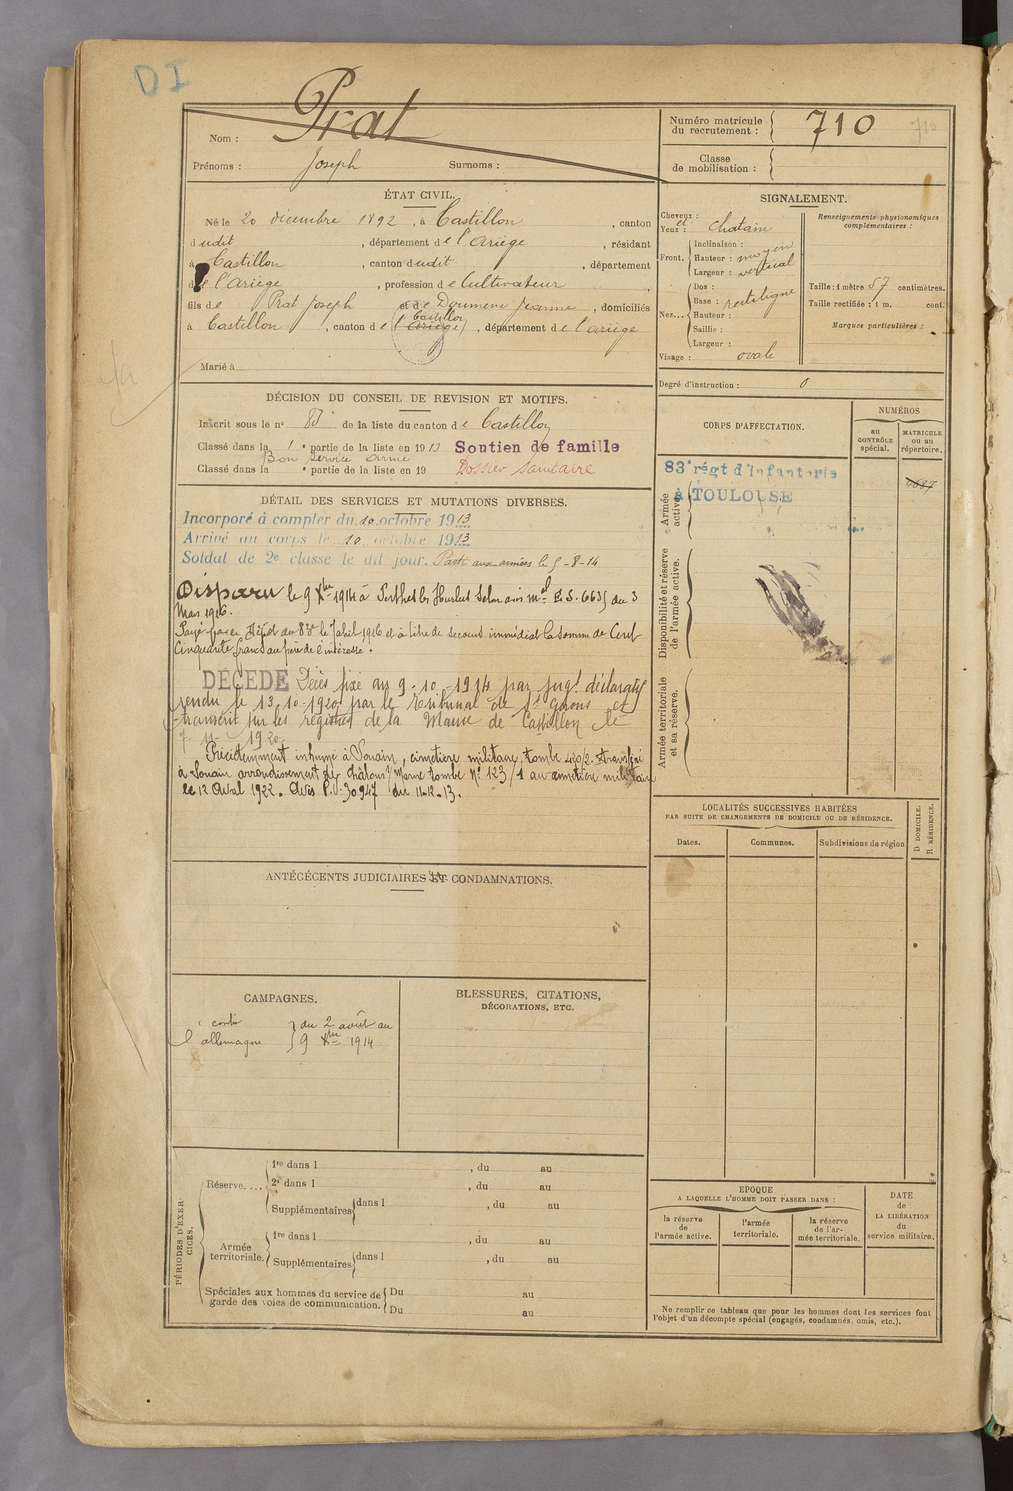 DI
Nom : Prat
Prénoms : Joseph Surnoms :
Numéro matricule du recrutement : 710 710
Classe de mobilisation :
ÉTAT CIVIL.
Né le 20 décembre 1892, à Castillon, canton
dudit, département de l'Ariège, résidant
à Castillon, canton dudit, département
de l'Ariège, profession de Cultivateur
fils de Prat Joseph et de Doumenc Jeanne, domiciliés
Castillon
à Castillon, canton de (l'Ariège), département de l'ariège
Marié à
SIGNALEMENT.
Cheveux :
et
Yeux : chatain
Front. Inclinaison :
Hauteur : moyen
Largeur : vertical
Nez... Dos :
Base : rectiligne
Hauteur :
Saillie :
Largeur :
Visage : ovale
Renseignements physionomiques complémentaires :
Taille : 1 mètre 57 centimètres.
Taille rectifiée : 1 m. cent.
Marques particulières :
Degré d'instruction : 0
DÉCISION DU CONSEIL DE REVISION ET MOTIFS.
Inscrit sous le nº 83 de la liste du canton de Castillon
Classé dans la 1 e partie de la liste en 1913 Soutien de famille
Bon service armé
Classé dans la e partie de la liste en 19 Dossier sanitaire
CORPS D'AFFECTATION.
NUMÉROS
au CONTRÔLE spécial.
MATRICULE ou au répertoire.
Armée active.
83e régt d'infanterie
à TOULOUSE
Disponibilité et réserve de l'armée active.
Armée territoriale et sa réserve.
DÉTAIL DES SERVICES ET MUTATIONS DIVERSES.
Incorporé à compter du 10 octobre 1913
Arrivé au corps le 10 octobre 1913
Soldat de 2e classe le dit jour. Parti aux armées le 5-8-14
Disparu le 9 Xbre 1914 à Perthes les Hurlus Selon avis mel E.S. 6635 du 3
Mars 1916.
Payé par le Dépôt du 83e le 7 avril 1916 et à titre de secours immédiat la somme de Cent
Cinquante francs au père de l'intéressé.
DÉCÉDÉ Décès fixé au 9-10-1914 par jugt déclaratif
rendu le 13.10.1920 par le tribunal de St Girons et
transcrit sur les registres de la Mairie de Castillon le
7-11-1920.
Précédemment inhumé à Souain, cimetière militaire, tombe 420/2. transféré
à Souain arrondissement de Châlons s/Marne tombe Nº 123/1 au cimetière militaire
le 12 Avril 1922. Avis P.V. 30947 du 11-12-13.
LOCALITÉS SUCCESSIVES HABITÉES
PAR SUITE DE CHANGEMENTS DE DOMICILE OU DE RÉSIDENCE.
Dates. Communes. Subdivisions de région
D DOMICILE.
R RÉSIDENCE.
ANTÉCÉCENTS JUDICIAIRES ET CONDAMNATIONS.
CAMPAGNES.
contre du 2 août au
l'allemagne 9 Xbre 1914
BLESSURES, CITATIONS,
DÉCORATIONS, ETC.
PÉRIODES D'EXERCICES.
Réserve.... 1re dans l , du au
2e dans l , du au
Supplémentaires dans l , du au
Armée territoriale. 1re dans l , du au
Supplémentaires dans l , du au
Spéciales aux hommes du service de garde des voies de communication. Du au
Du au
EPOQUE
A LAQUELLE L'HOMME DOIT PASSER DANS :
la réserve de l'armée active.
l'armée territoriale.
la réserve de l'armée territoriale.
DATE de LA LIBÉRATION du service militaire.
Ne remplir ce tableau que pour les hommes dont les services font
l'objet d'un décompte spécial (engagés, condamnés, omis, etc.).